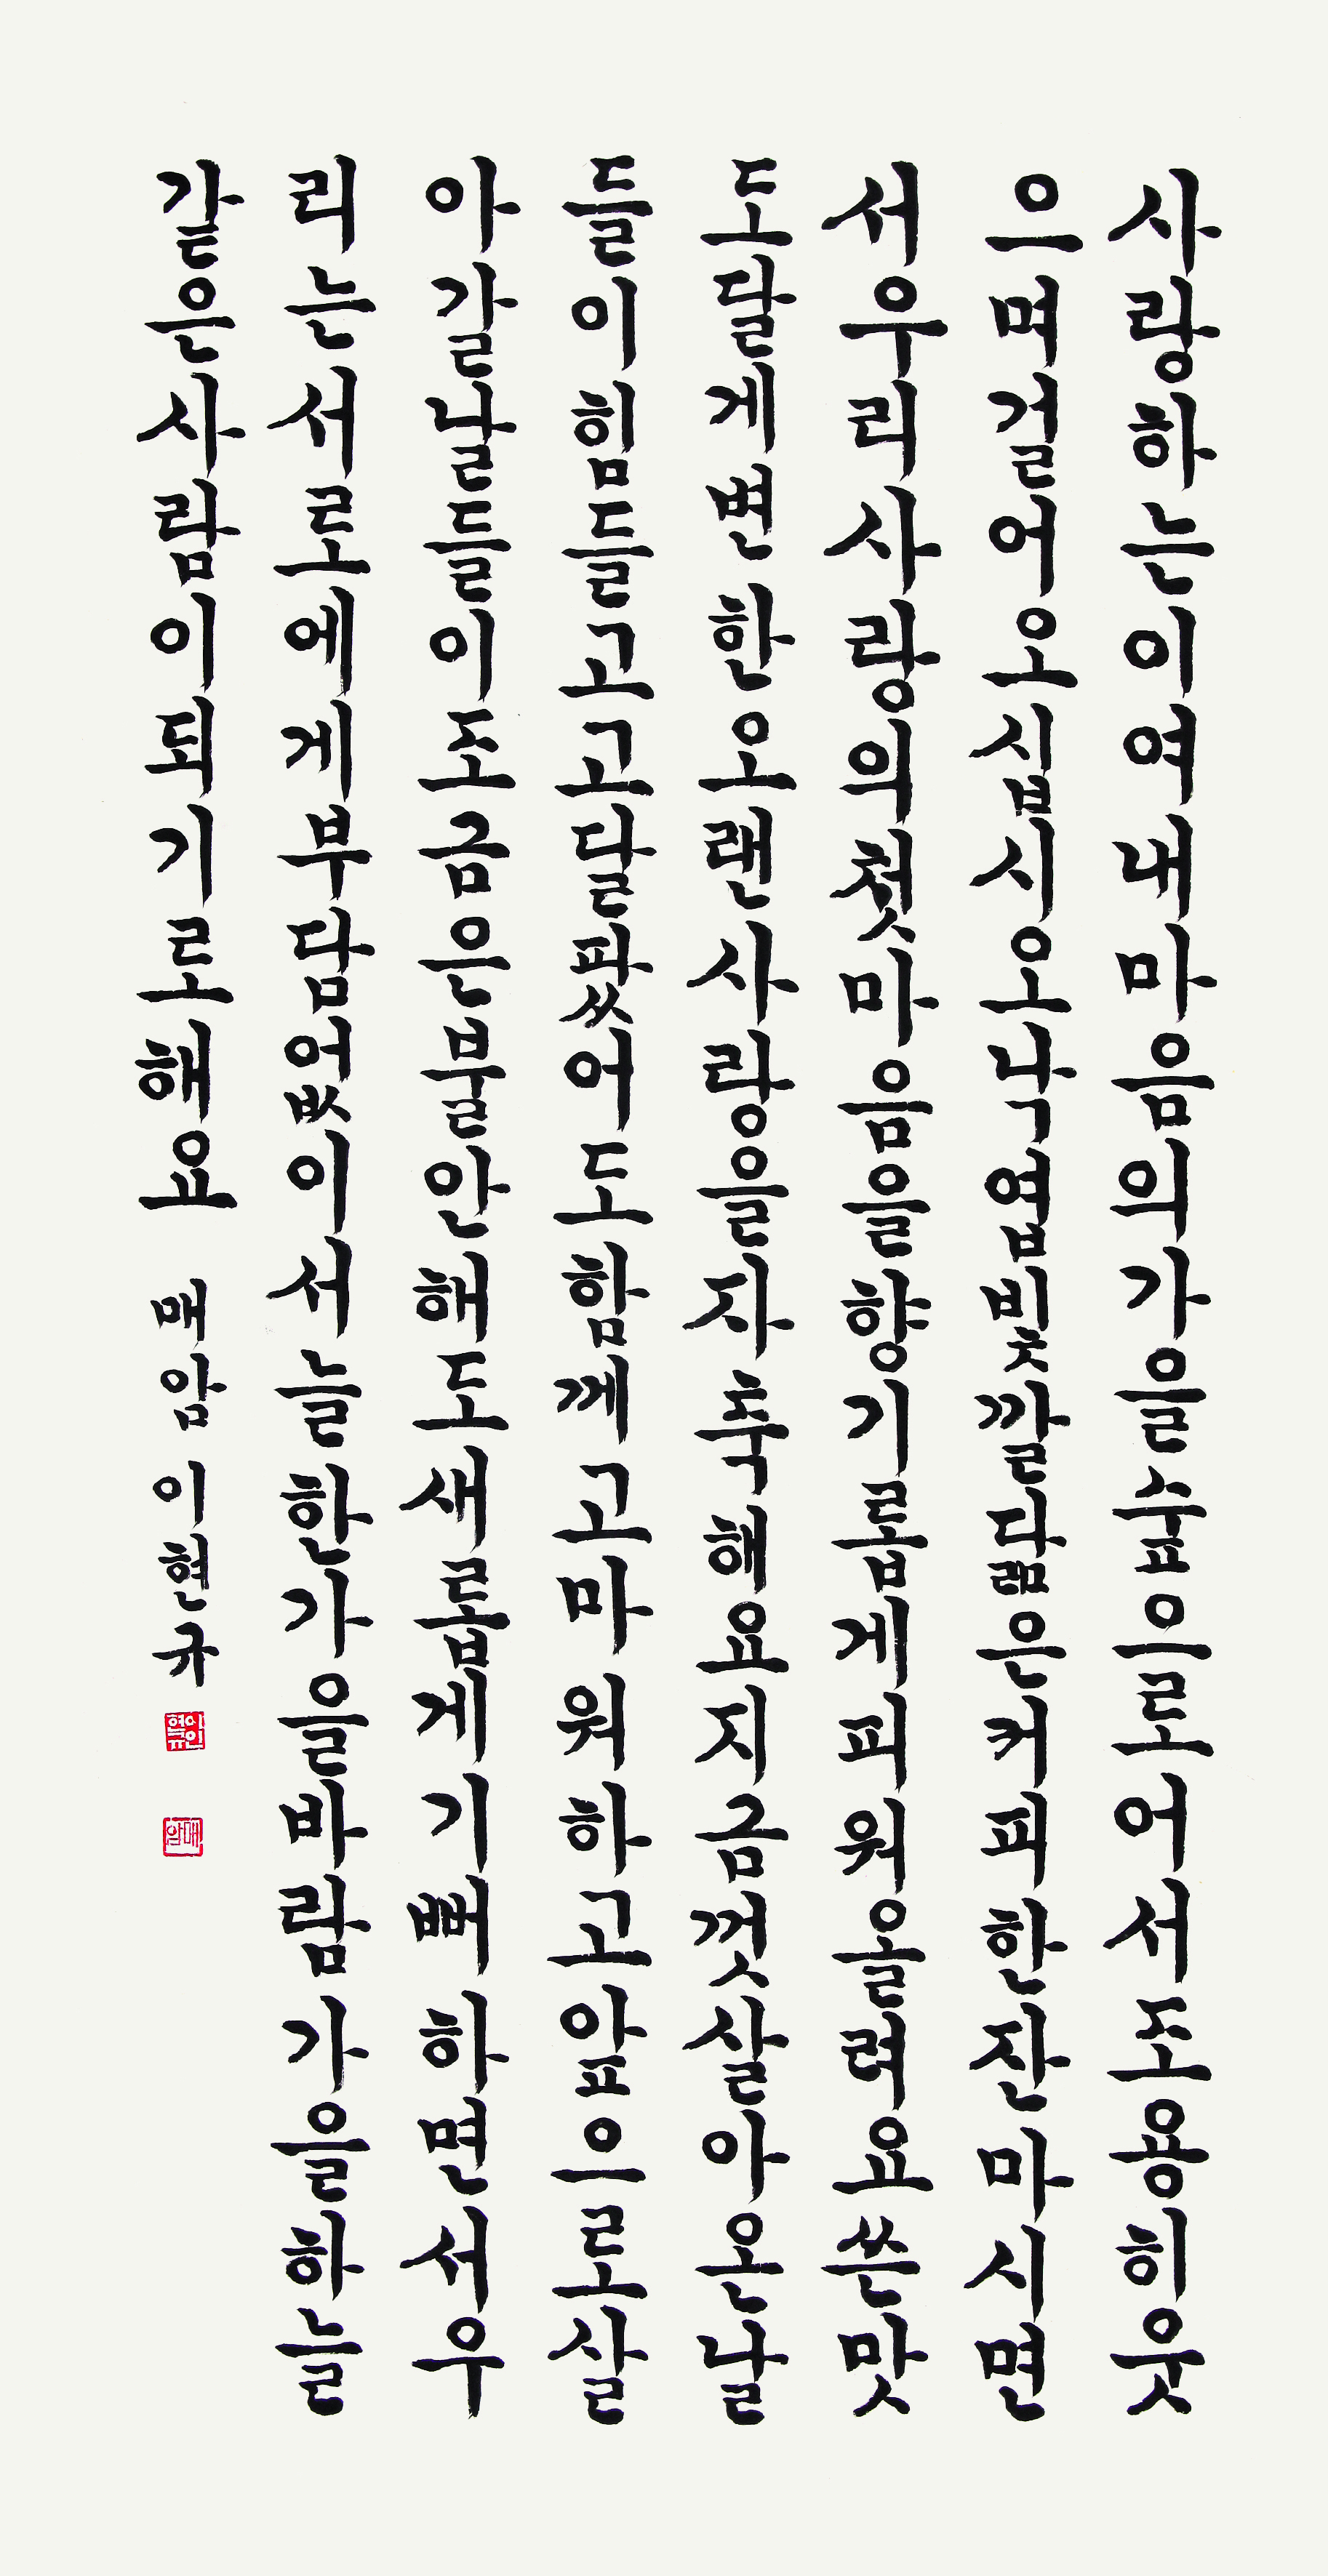 사랑하는이여내마음의가을숲으로어서조용히웃
으며걸어오십시오낙엽빛깔닮은커피한잔마시면
서우리사랑의첫마음을향기롭게피워올려요쓴맛
도달게변한오랜사랑을자축해요지금껏살아온날
들이힘들고고달팠어도함께고마워하고앞으로살
아갈날들이조금은불안해도새롭게기뻐하면서우
리는서로에게부담없이서늘한가을바람가을하늘
같은사람이되기로해요 매암 이현규
이현규
매암